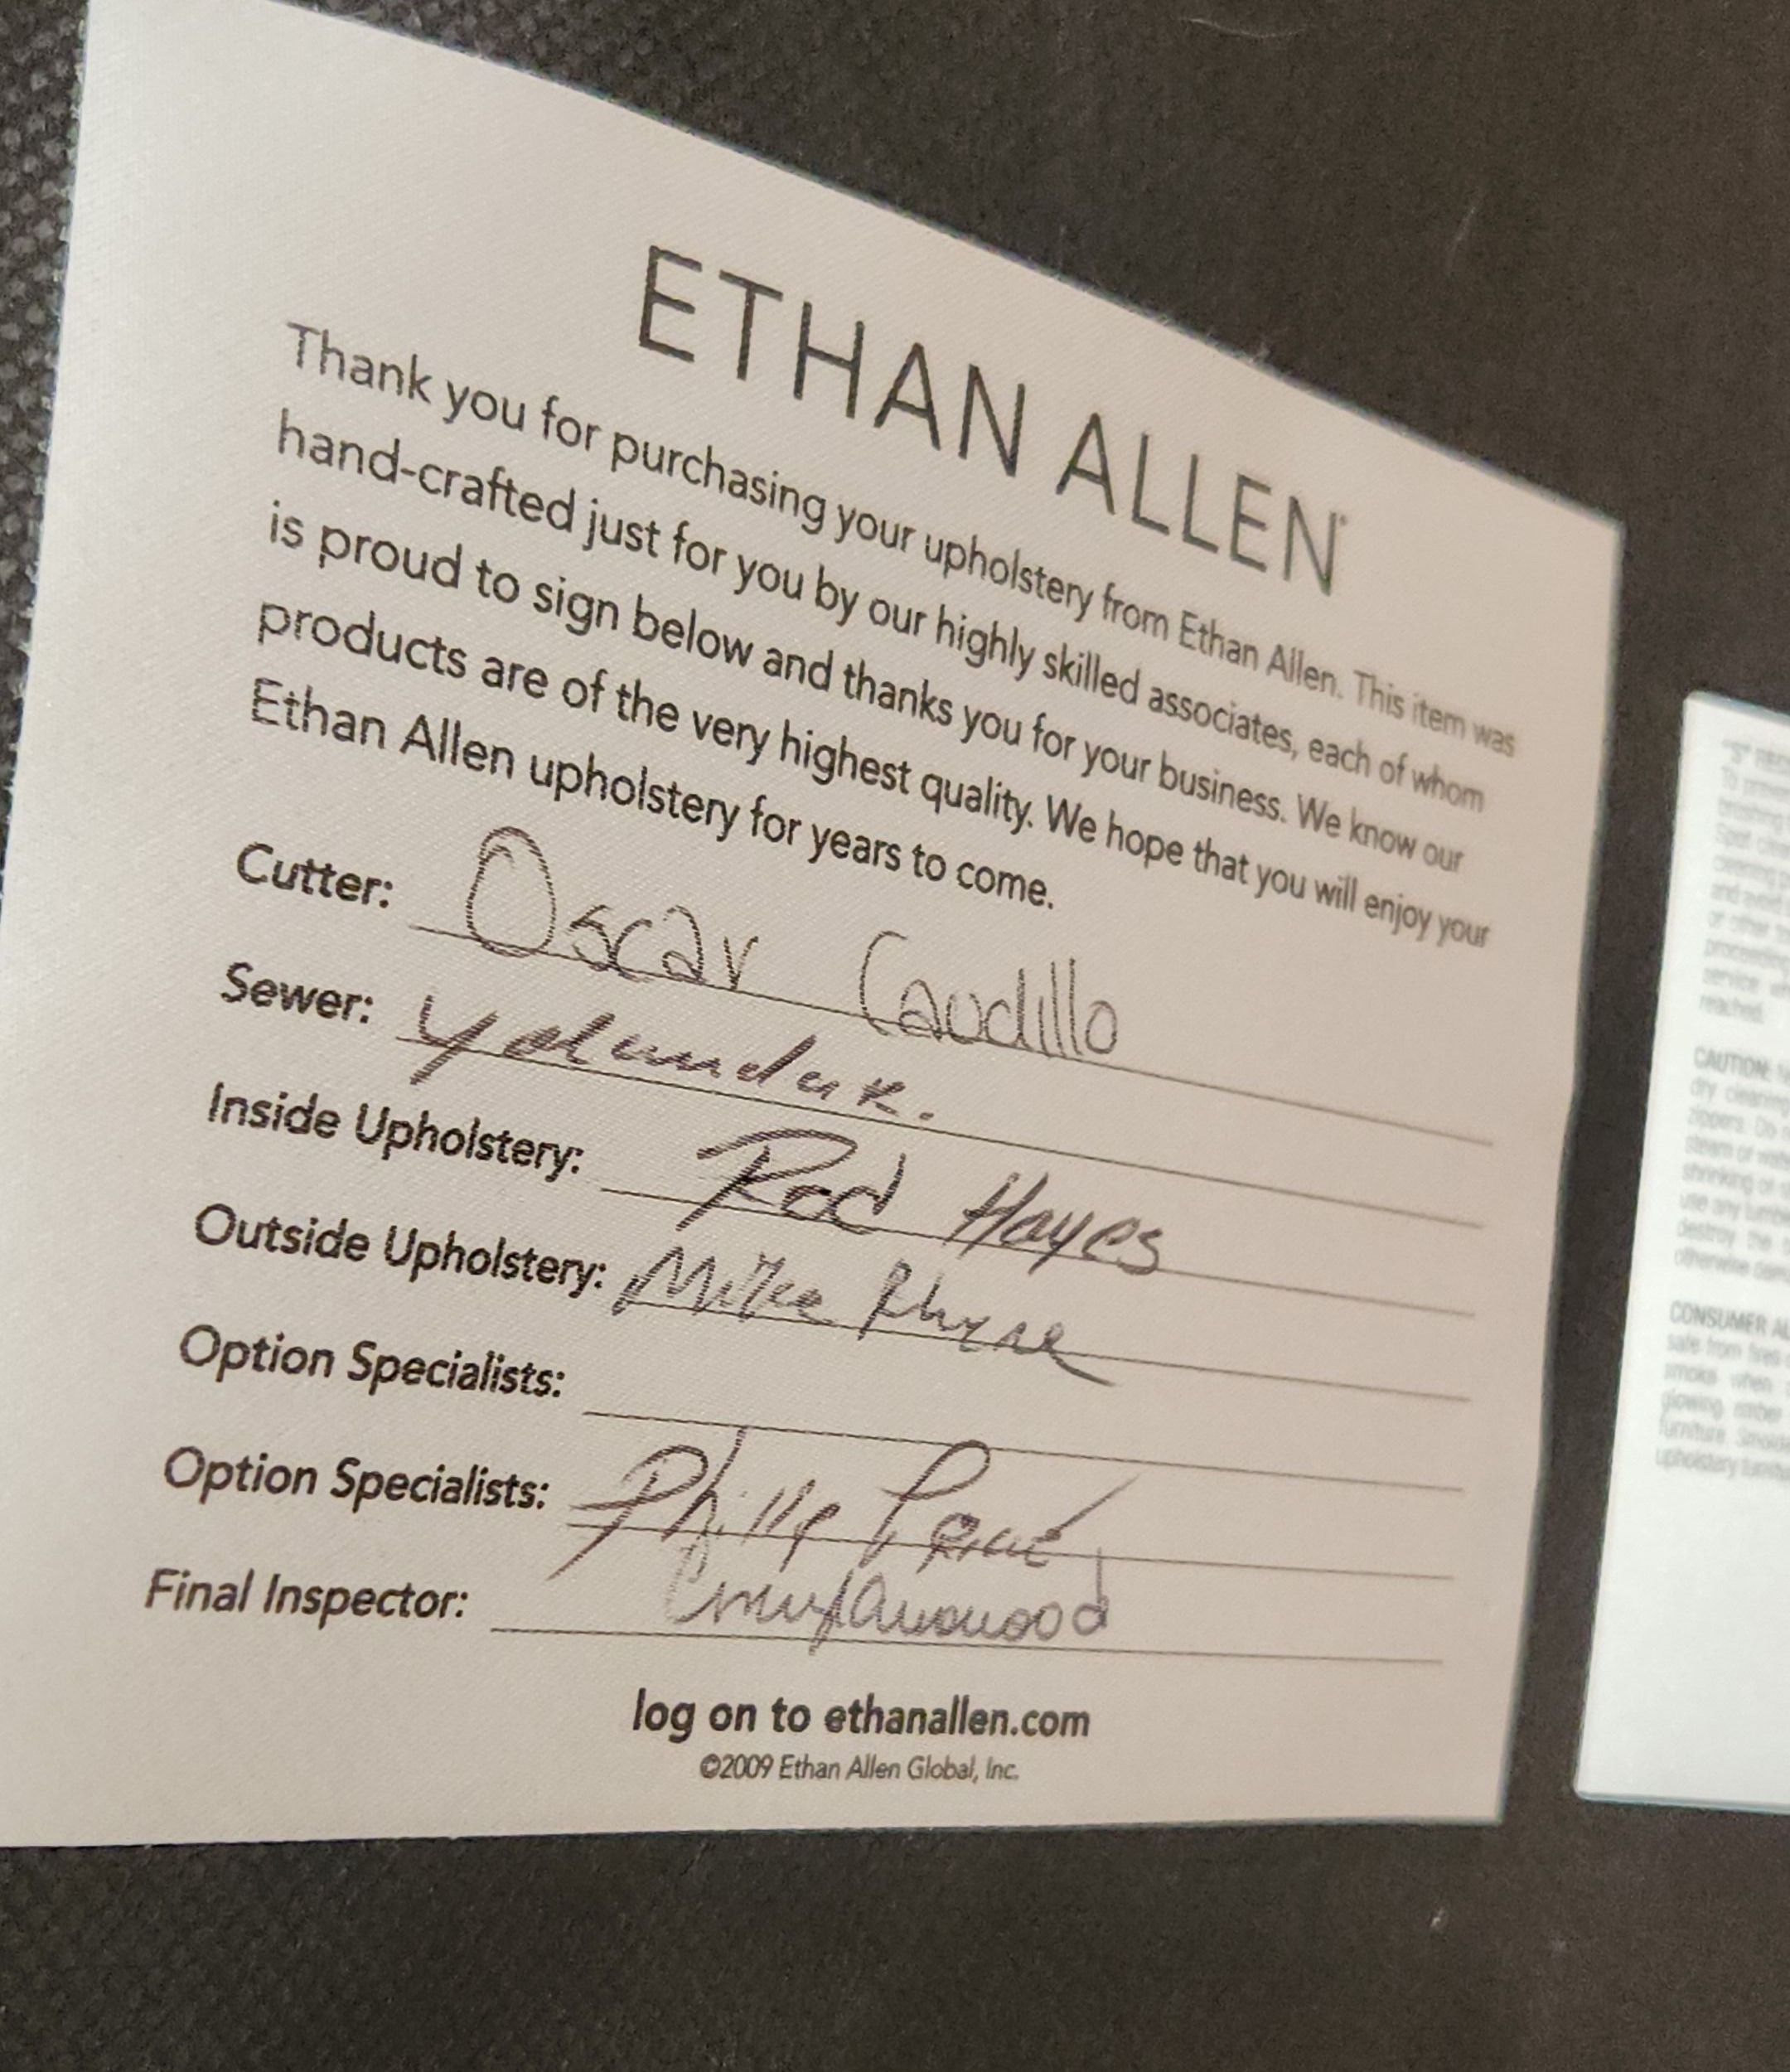 ETHAN ALLEN
Thank you for purchasing your upholstery from Ethan Allen. This item was
hand-crafted just for you by our highly skilled associates, each of whom
is proud to sign below and thanks you for your business. We know our
products are of the very highest quality. We hope that you will enjoy your
Ethan Allen upholstery for years to come.
Cutter: Oscar Caudillo
Sewer: Yolanda K.
Inside Upholstery: Rod Hayes
Outside Upholstery: Mike Rhyne
Option Specialists:
Option Specialists: Phillip
Final Inspector:
log on to ethanallen.com
©2009 Ethan Allen Global, Inc.
"S" REC
To preve
brushing
Spot cle
cleaning
and avoid
or other
proceeding
service
reached.
CAUTION:
dry cleaning
zippers. Do
steam or
shrinking of
use any
destroy the
otherwise
CONSUMER
safe from fires
smoke when
glowing ember
furniture.
upholstery